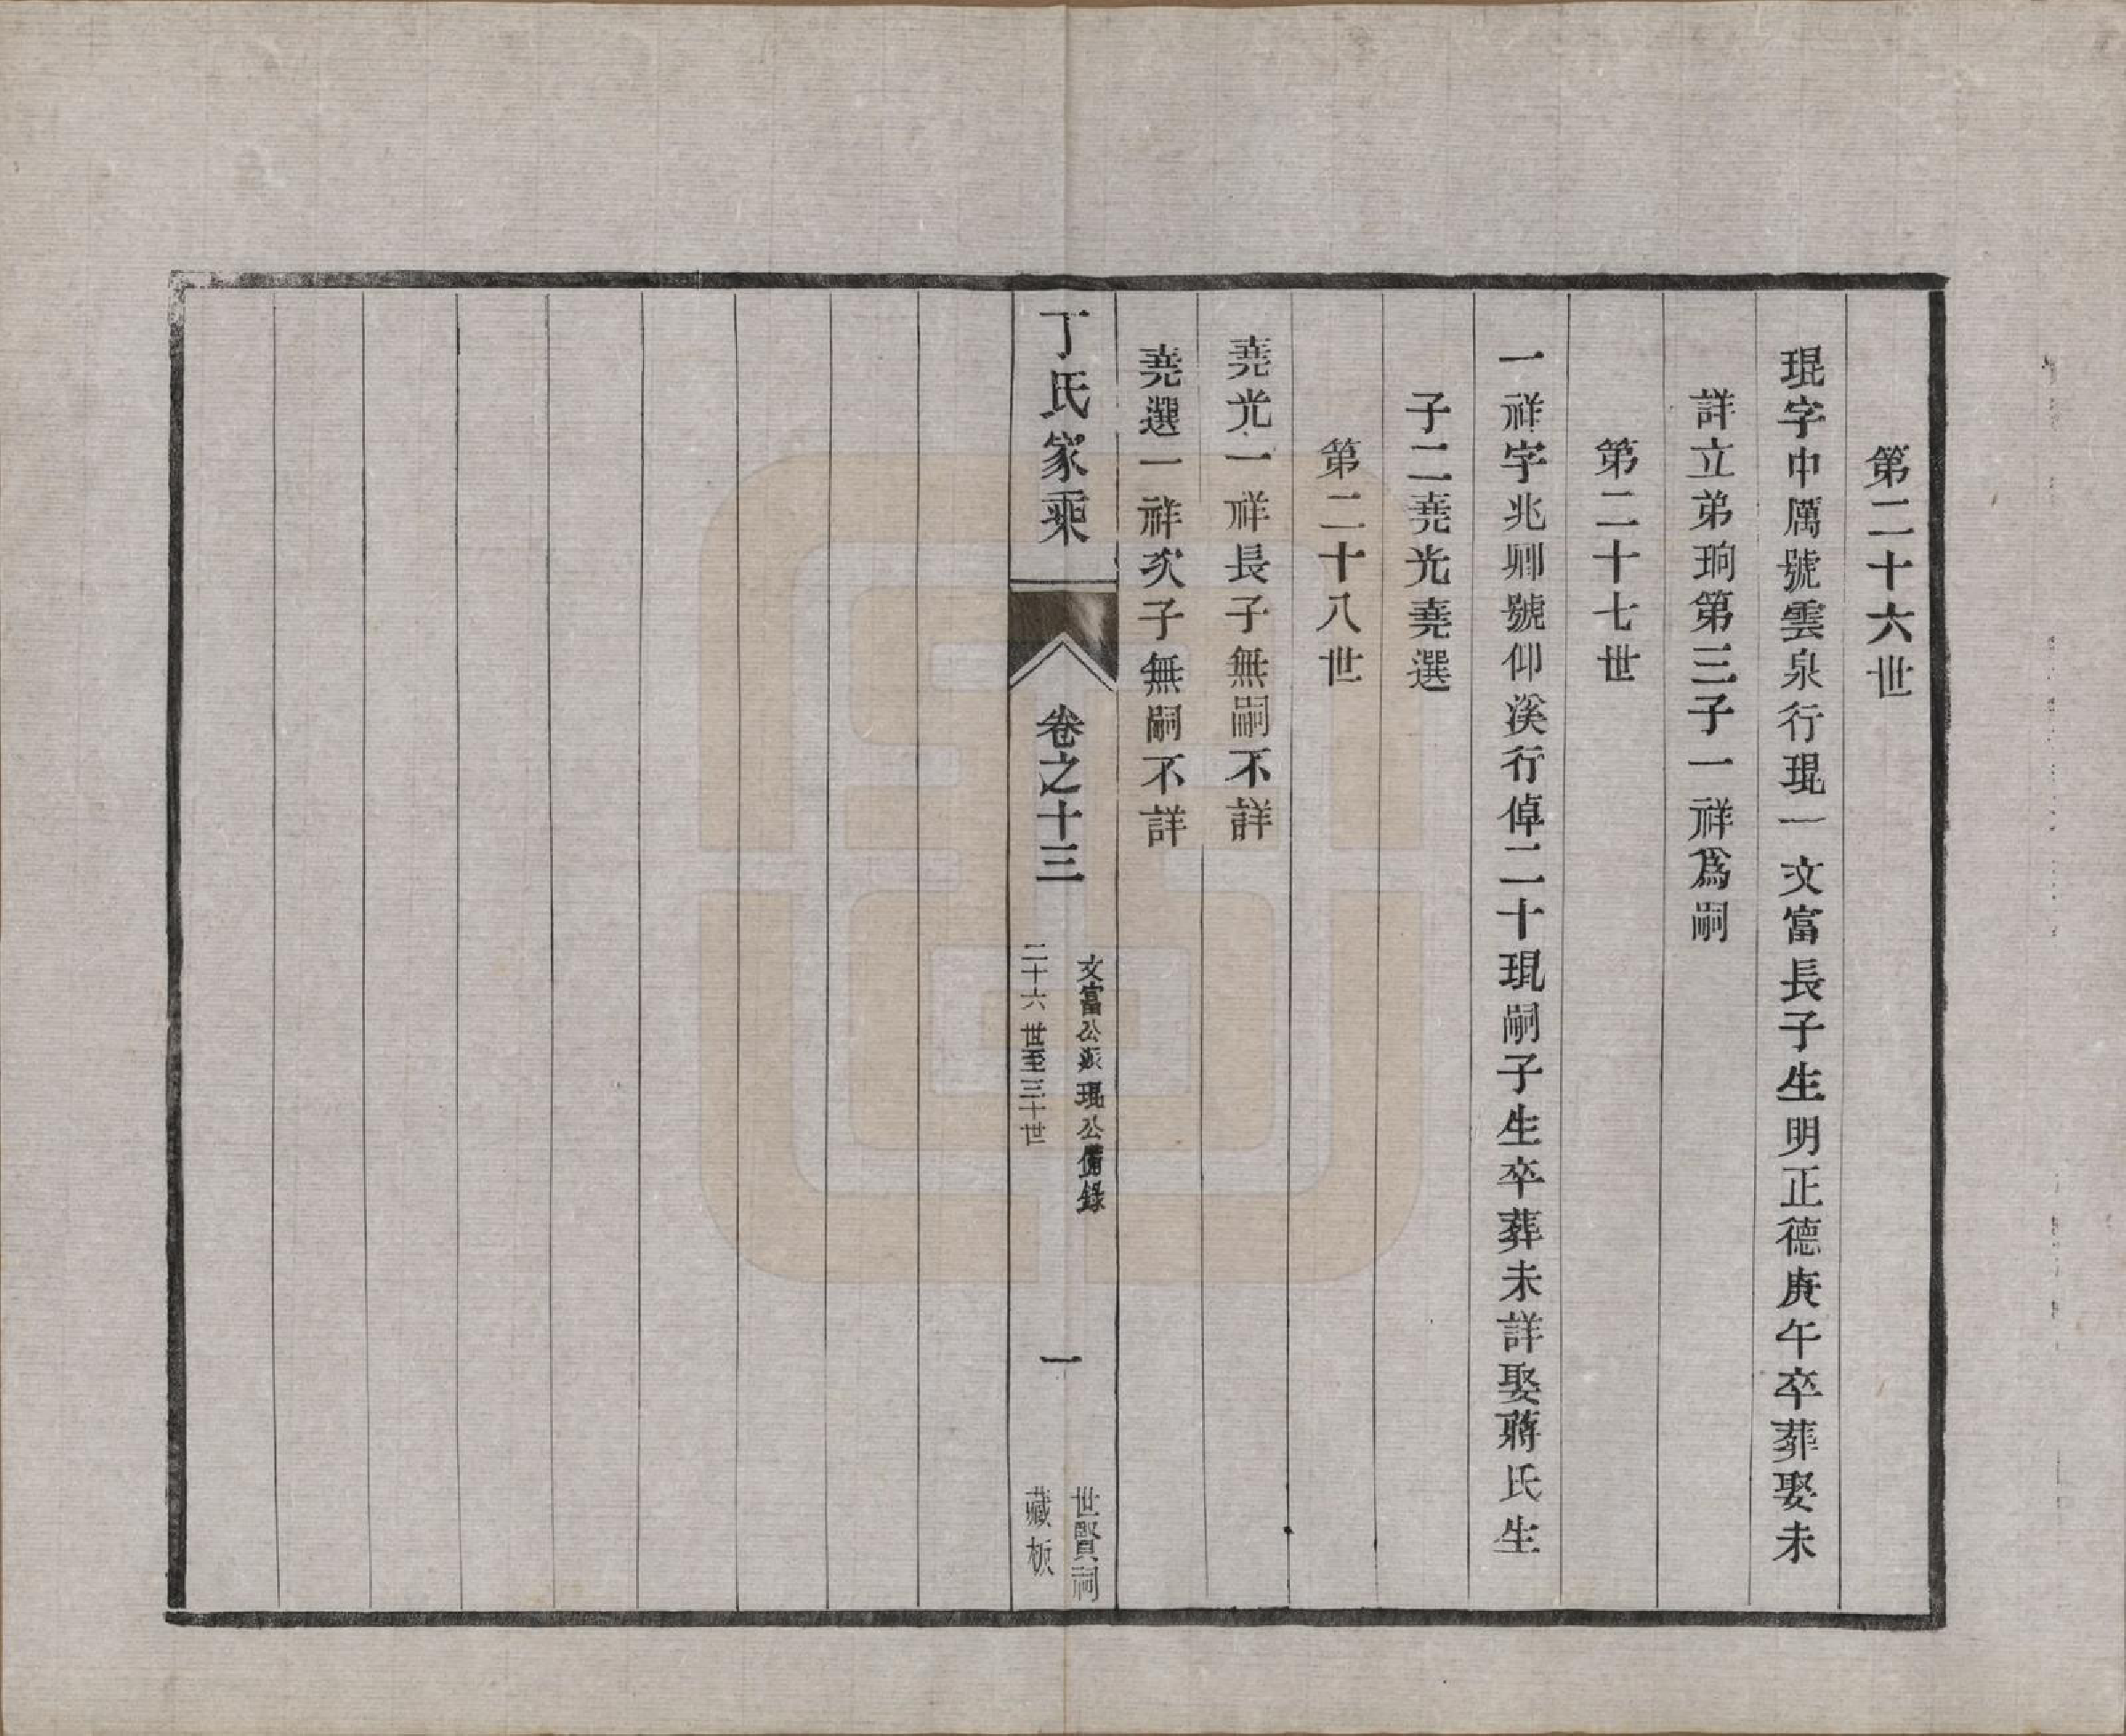 第二十六世
琨字中厲號雲泉行琨一文富長子生明正德庚午卒葬娶未
詳立弟珦第三子一祥爲嗣
第二十七世
一祥字兆卿號仰溪行倬二十琨嗣子生卒葬未詳娶蔣氏生
子二堯光堯選
第二十八世
堯光一祥長子無嗣不詳
堯選一祥次子無嗣不詳
丁氏家乘
卷之十三
文富公派琨公備錄
二十六世至三十世
一
世賢祠
藏板